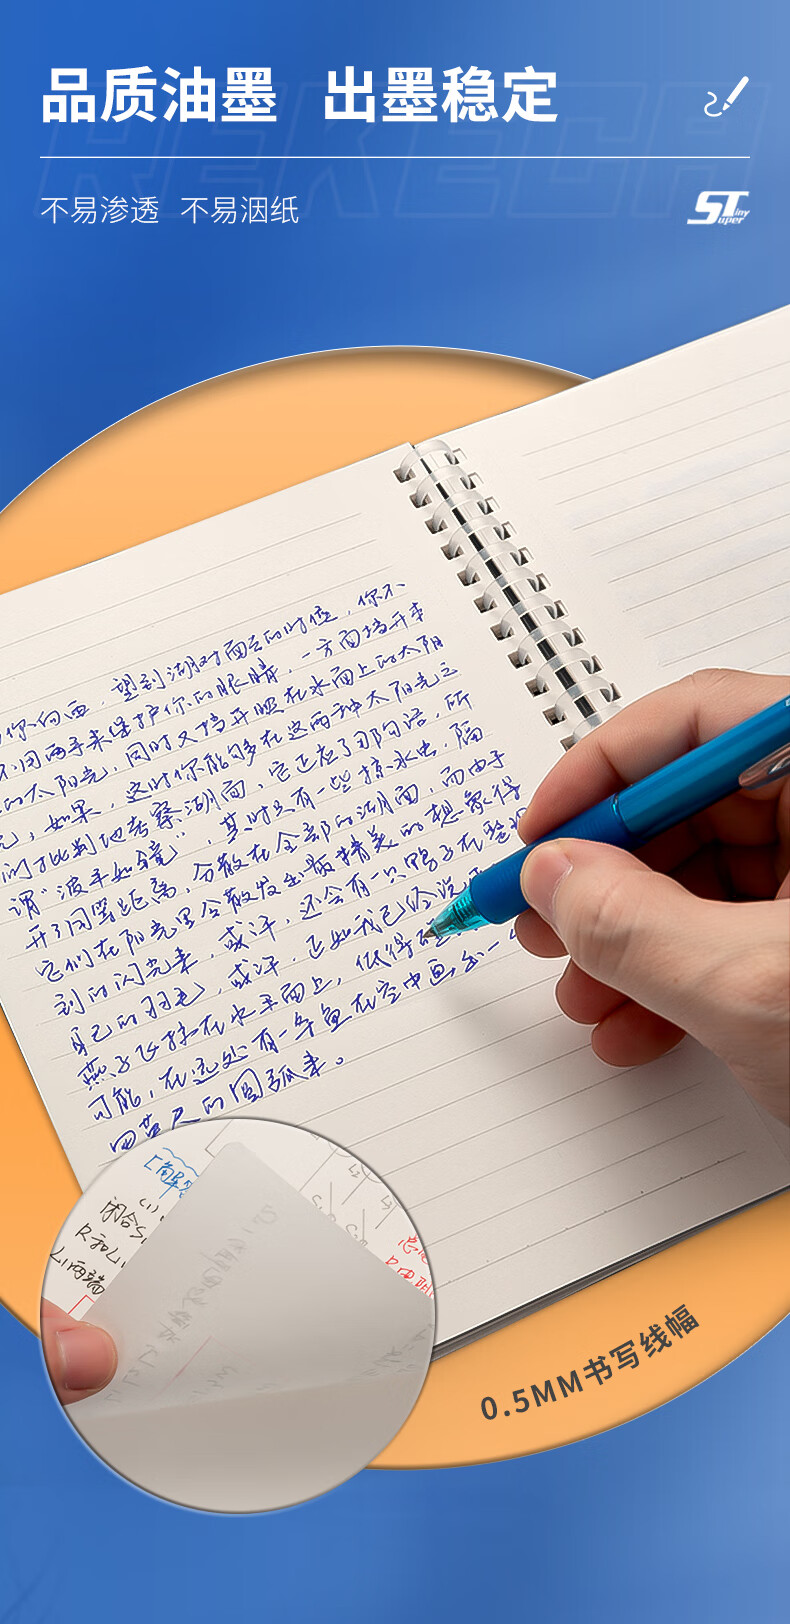 品质油墨 出墨稳定
不易渗透 不易洇纸
ST
iny
uper
你向西，望到湖对面去的时候，你不
用两手来保护你的眼睛，一方面挡开本
的太阳光，同时又挡开照在水面上的太阳
光，如果，这时你能够在这两种太阳光之
们批判地考察湖面，它正应了那句话，所
谓“波平如镜”，其时只有一些掠水虫，隔
开了同等距离，分散在全部的湖面，而由于
它们在阳光里分散发出最精美的想象得
到的闪光来，或许，还会有一只鸭子在整理
自己的羽毛，或许，正如我已经说
燕子飞掠在水平面上，低得
可能，在远处有一条鱼在空中画出一
四英尺的圆弧来。
[解
(1)
闭合S
R和L1
L1两端
L2
L3
0.5MM书写线幅